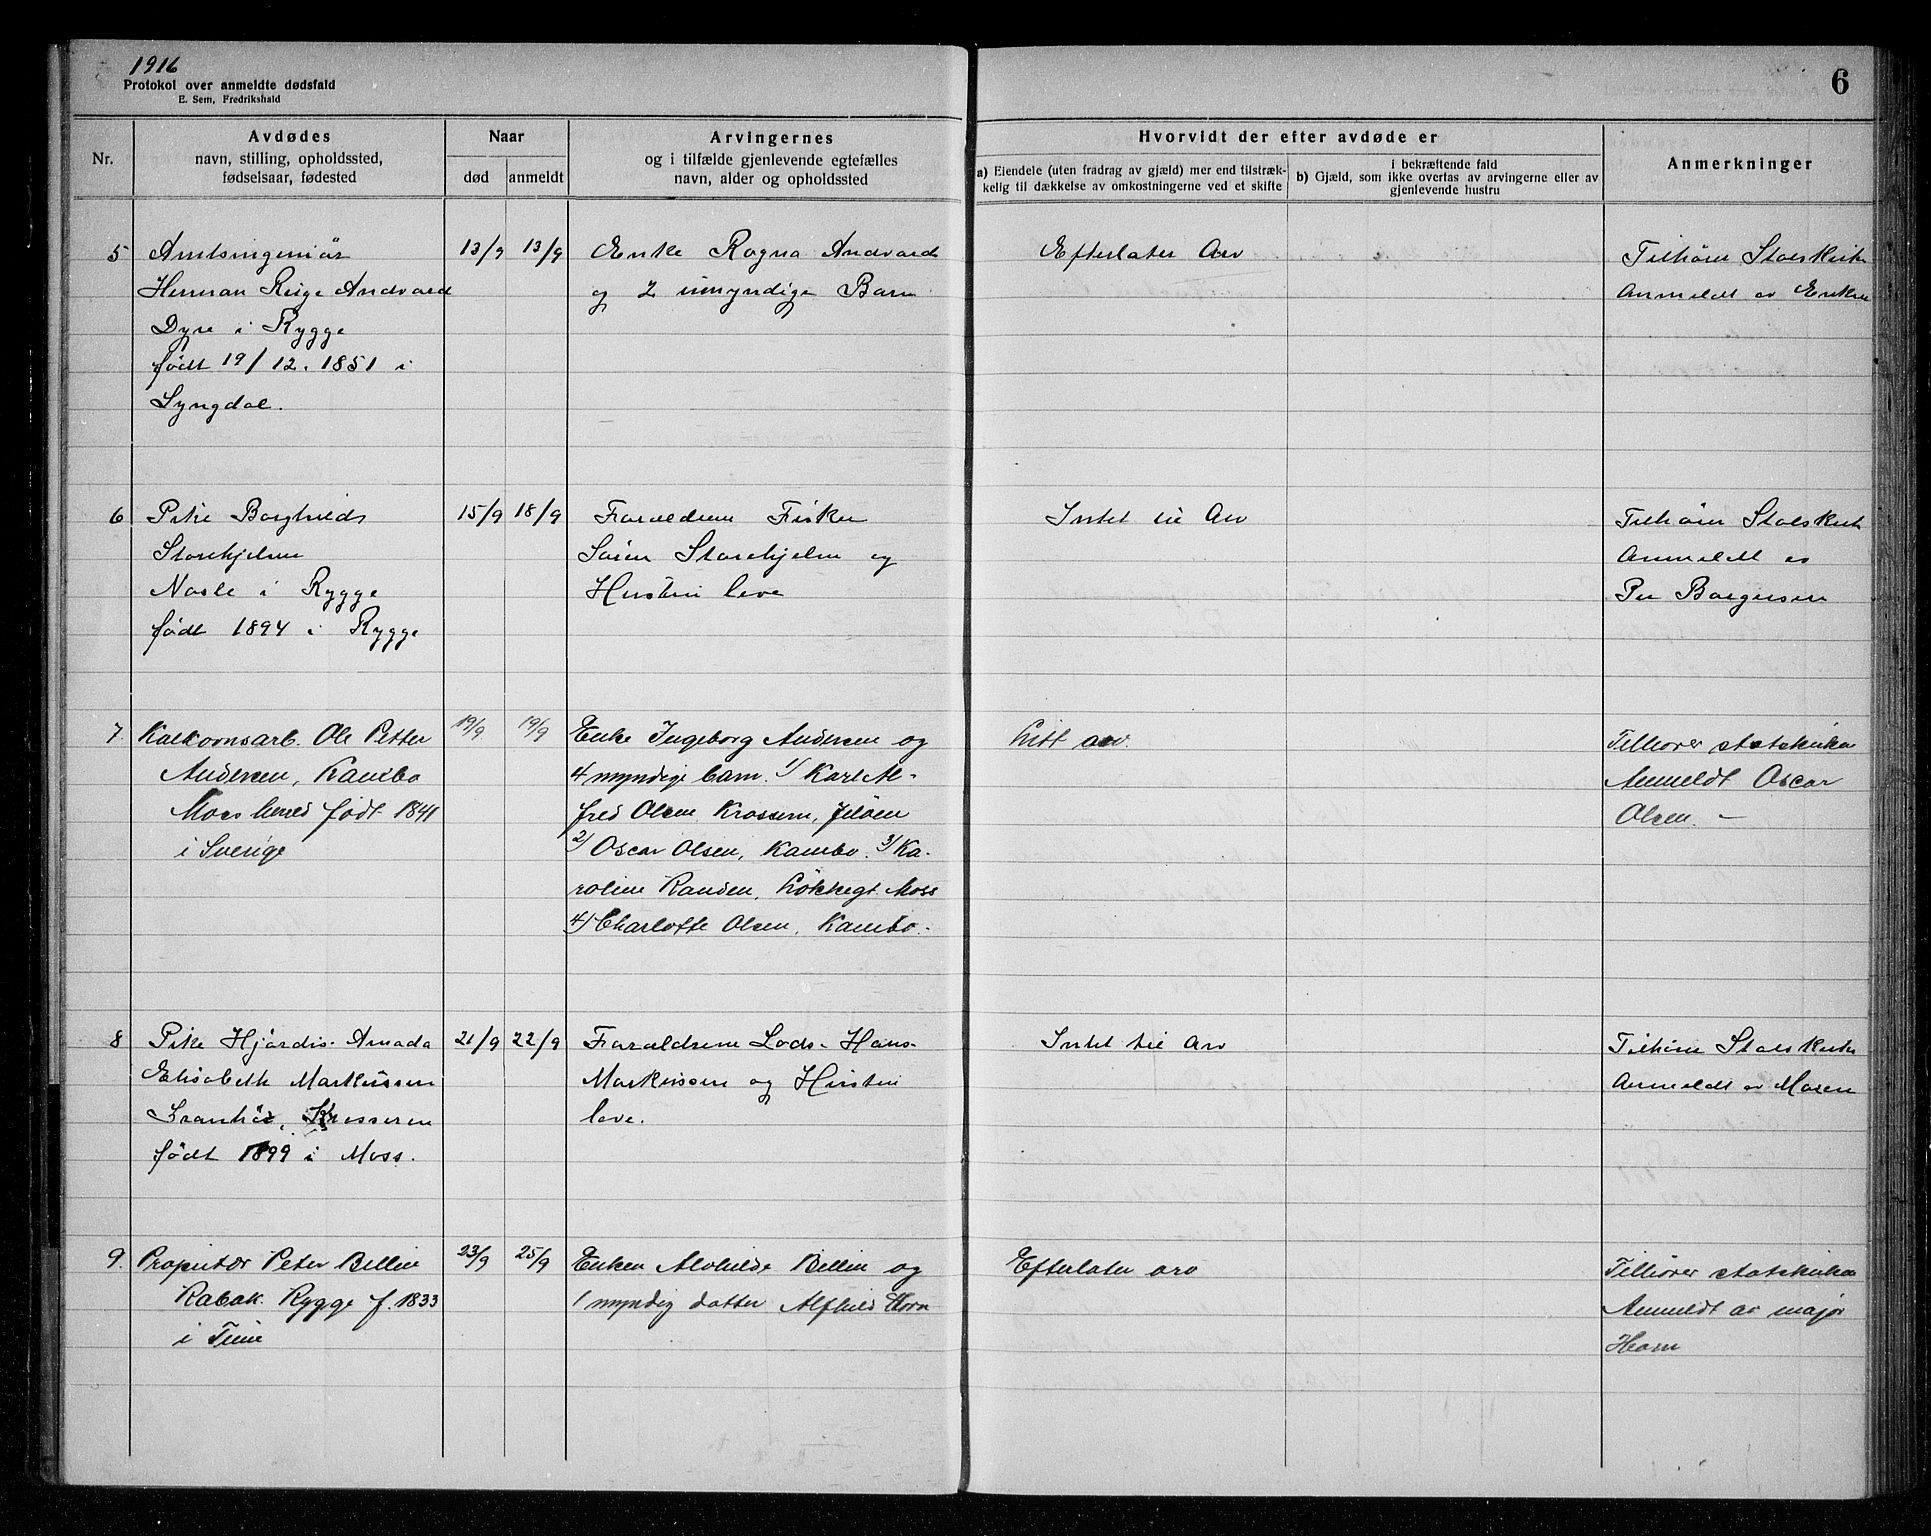 1916
Protokol over anmeldte dødsfald
E. Sem, Fredrikshald
6
Nr.
Avdødes
navn, stilling, opholdssted,
fødselsaar, fødested
Naar
død
anmeldt
Arvingernes
og i tilfælde gjenlevende egtefælles
navn, alder og opholdssted
Hvorvidt der efter avdøde er
a) Eiendele (uten fradrag av gjæld) mer end tilstræk-
kelig til dækkelse av omkostningerne ved et skifte
i bekræftende fald
b) Gjæld, som ikke overtas av arvingerne eller av
gjenlevende hustru
Anmerkninger
5
Amtsingeniör
Herman Andvord
Dyre i Rygge
født 19/12. 1851 i
Lyngdal.
13/9
13/9
Enke Ragna Andvord
og 2 umyndige Barn
Efterlater Arv
Tilhörer Statskirken
Anmeldt av Enken
6
Pike Borghild
Storehjelm
i Rygge
født 1894 i Rygge
15/9
18/9
Forældrene Fisker
Sören Storehjelm og
Hustru leve
Intet til Arv
Tilhörer Statskirk
Anmeldt av
Per Borgersen
7.
Kalkovnsarb. Ole Petter
Andersen, Kambo
Moss herred født 1841
i Sverige
19/9
19/9
Enke Ingeborg Andersen og
4 myndige barn. 1/ Karl Al-
fred Olsen Krossern, Jeløen
2/ Oscar Olsen, Kambo. 3/ Ka-
roline Randen, Løkkegt. Moss
4/ Charlotte Olsen, Kambo.
Litt arv.
Tilhører statskirken
Anmeldt Oscar
Olsen. –
8
Pike Hjördis Amada
Elisabeth Markussen
Krosseren
født 1899 i Moss.
21/9
22/9
Forældrene Lods Hans
Markussen og Hustru
leve.
Intet til Arv
Tilhörer Statskirken
Anmeldt av Moren
9.
Propritær Peter Billin
Rabæk. Rygge f. 1833
i
23/9
25/9
Enken Alvhilde Billin og
1 myndig datter Alfhild Horn
Efterlater arv
Tilhører statskirken
Anmeldt av major
Horn